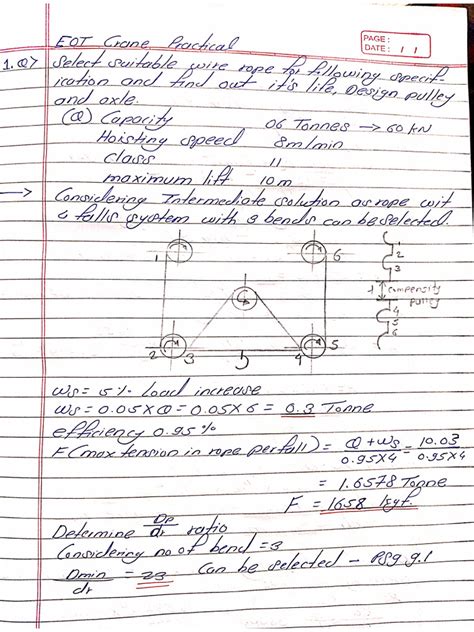 PAGE:
DATE: / /
EOT Crane Practical
1.Q> Select suitable wire rope for following specif-
ication and find out it's life, Design pulley
and axle.
(Q) Capacity 06 Tonnes → 60 kN
Hoisting speed 8m/min
class 11
maximum lift 10m
→ Considering Intermediate solution as rope wit
4 falls system with 3 bends can be selected.
1
6
2
3
4
5
1
2
3
compensity
pulley
4
5
6
Ws = 5 % Load increase
Ws = 0.05 x Q = 0.05 x 6 = 0.3 Tonne
efficiency 0.95 %
F (max tension in rope per fall) = Q + Ws / 0.95 x 4 = 10.03 / 0.95 x 4
= 1.6578 Tonne
F = 1658 kgf.
Determine Dp / dr ratio
Considering no of bend = 3
Dmin / dr = 23 Can be selected - PSg 9.1